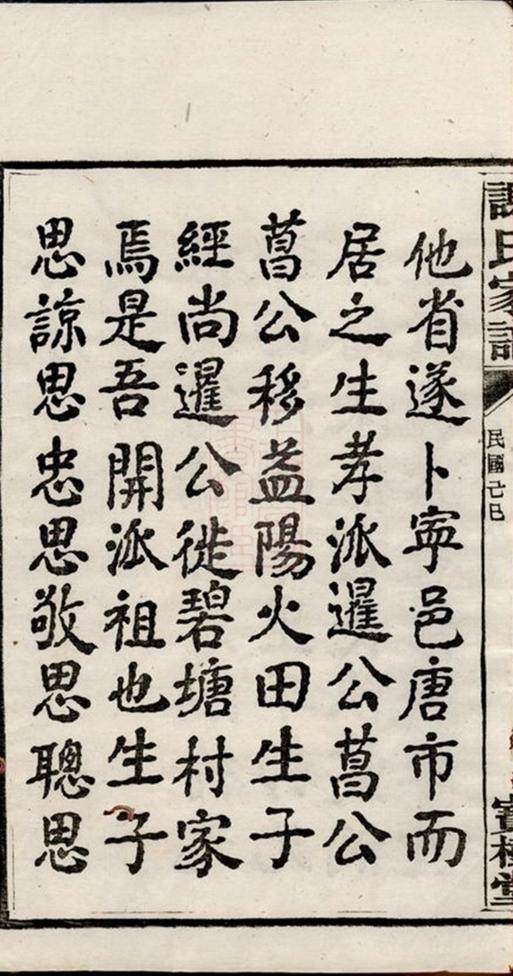 謝氏家譜
民國己巳
寶樹堂
他省遂卜寧邑唐市而
居之生孝派暹公菖公
菖公移益陽火田生子
經尚暹公徙碧塘村家
焉是吾開派祖也生子
思諒思忠思敬思聰思